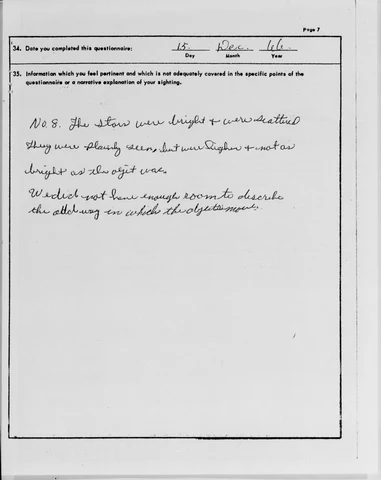 Page 7
34. Date you completed this questionnaire: 15 Dec. 66
Day Month Year
35. Information which you feel pertinent and which is not adequately covered in the specific points of the
questionnaire or a narrative explanation of your sighting.
No. 8. The stars were bright + were scattered
they were plainly seen, but were higher + not as
bright as the objet was.
We did not have enough room to describe
the odd way in which the objects move.